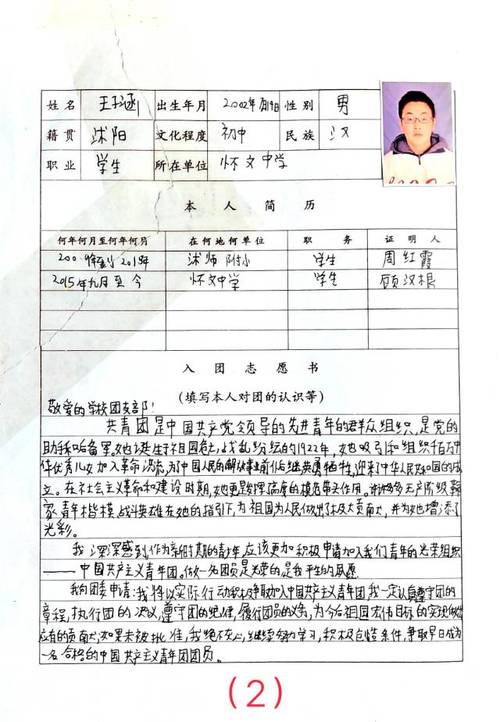 姓名 王 涵 出生年月 2002年 月 日 性别 男
籍贯 沭阳 文化程度 初中 民族 汉
职业 学生 所在单位 怀文中学
本人简历
何年何月至何年何月 在何地何单位 职务 证明人
沭师附小 学生 周红霞
2015年九月至今 怀文中学 学生 顾汉根
入团志愿书
(填写本人对团的认识等)
敬爱的学校团支部:
共青团是中国共产党领导的先进青年的群众组织,是党的
助手和后备军,她诞生于祖国危亡,战乱纷纭的1922年,她吸引和组织千百万中
华优秀儿女加入革命 ,为中国人民的解放事业前仆后继英勇牺牲,迎来了中华人民共和国的成
立。在社会主义革命和建设时期,她更是发挥 模范带头作用。 许多多无产阶级
家,青年楷模,战斗英雄在她的指引下,为祖国为人民做出了极大贡献,并为她增添了
光彩。
我深深感到作为新时期的青少年应该更加积极申请加入我们青年的光荣组织
——中国共产主义青年团。做一名团员是光荣的是我平生的夙愿。
我向团委申请:我将以实际行动积极争取加入中国共产主义青年团,我一定认真遵守团的
章程,执行团的决议,遵守团的纪律,履行团员的义务,为今后祖国宏伟目标的实现做出
应有的贡献,如果未被批准,我绝不灰心,继续努力学习,积极自悟条件,争取早日成为
一名合格的中国共产主义青年团团员。
(2)